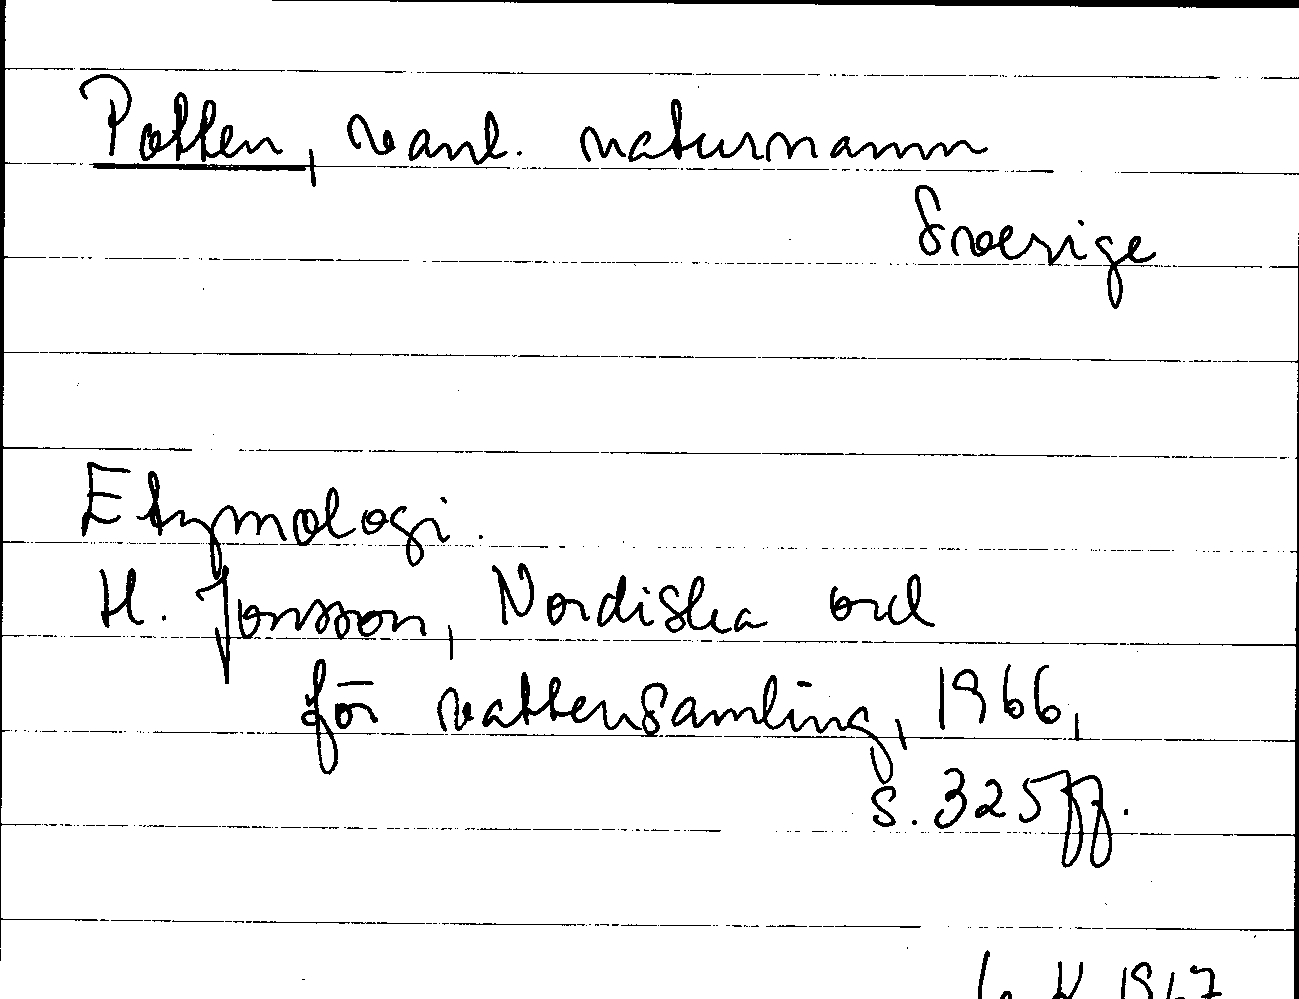 Potten, vanl. naturnamn
Sverige
Etymologi.
H. Jonsson, Nordiska ord
för vattensamling, 1966,
s. 325 ff.
1967